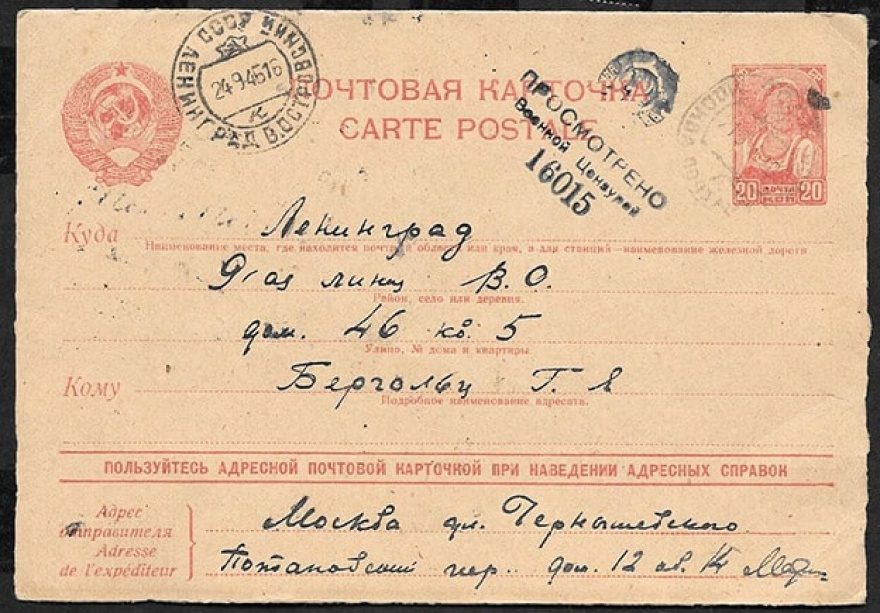 СССР ЛЕНИНГРАД В.ОСТРОВСКИЙ
24.9.45 16
ПОЧТОВАЯ КАРТОЧКА
CARTE POSTALE
ПРОСМОТРЕНО
Военной Цензурой
16015
20 ПОЧТА 20
КОП
Куда
Ленинград
Наименование места, где находится почта, и области или края, а для станций - наименование железной дороги
9/ая линия В.О.
Район, село или деревня.
дом. 46 кв. 5
Улица, № дома и квартиры.
Кому
Бергольц Г. Я
Подробное наименование адресата.
ПОЛЬЗУЙТЕСЬ АДРЕСНОЙ ПОЧТОВОЙ КАРТОЧКОЙ ПРИ НАВЕДЕНИИ АДРЕСНЫХ СПРАВОК
Адрес
отправителя
Adresse
de l'expéditeur
Москва ул. Чернышевского
Потаповский пер. дом. 12 кв. 14